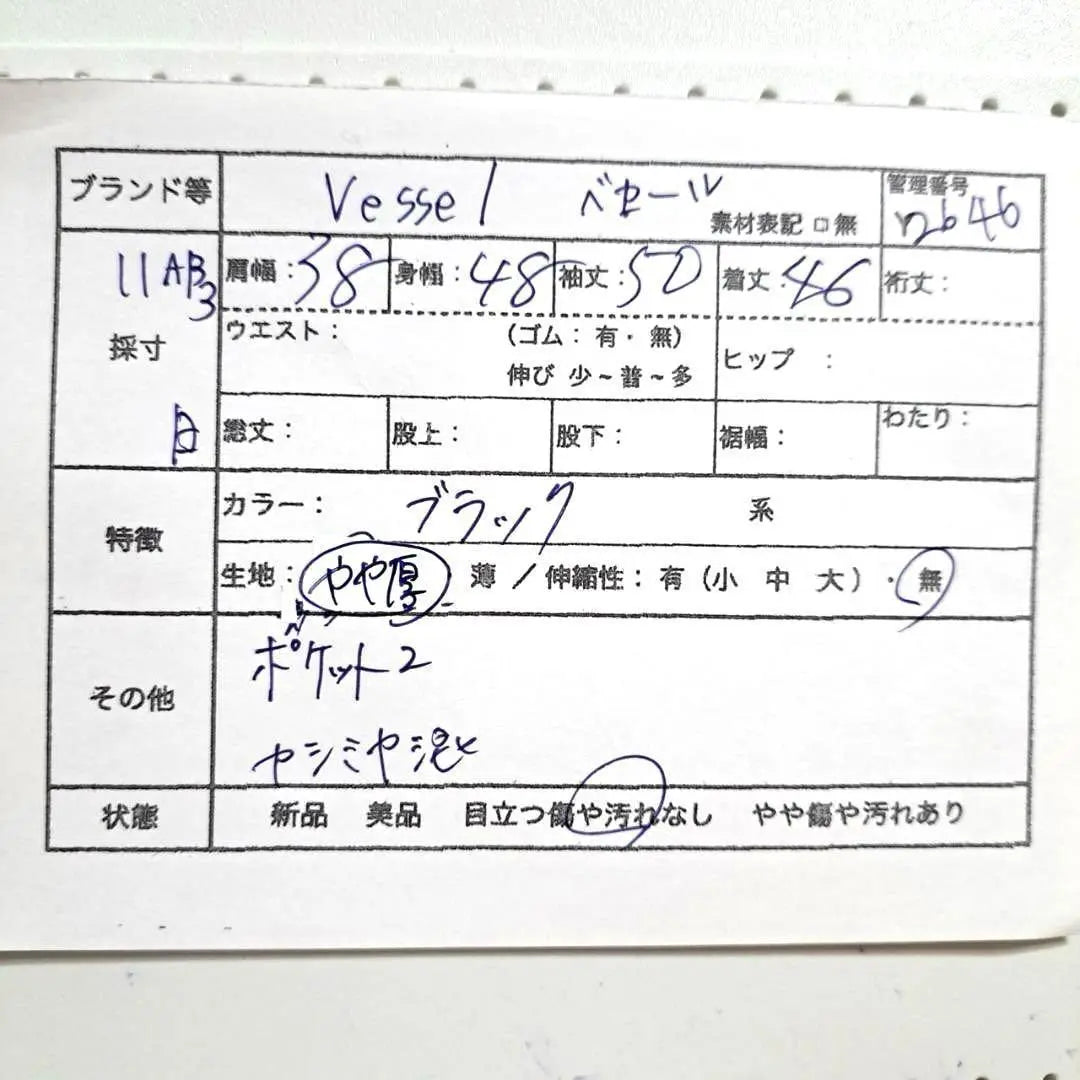 ブランド等 Vessel ベセール 素材表記 □ 無 管理番号 n2646
11AB3 肩幅：38 身幅：48 袖丈：50 着丈：46 裄丈：
採寸 ウエスト： （ゴム：有・無） ヒップ ：
伸び 少～普～多
日 総丈： 股上： 股下： 裾幅： わたり：
特徴 カラー： ブラック 系
生地：やや厚 薄 ／ 伸縮性：有（小 中 大）・無
その他 ポケット2
カシミヤ混
状態 新品 美品 目立つ傷や汚れなし やや傷や汚れあり